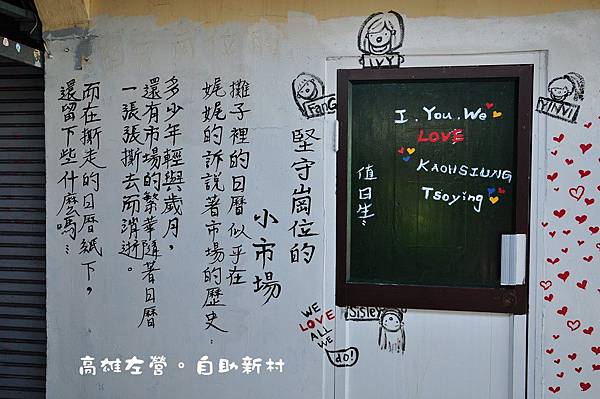 堅守崗位的
小市場
攤子裡的日曆似乎在
娓娓的訴說著市場的歷史…
多少年輕與歲月，
還有市場的繁華隨著日曆
一張張撕去而消逝。
而在撕走的日曆紙下，
還留下些什麼嗎…
IVY
FanG
YINYI
I. You. We
LOVE
KAOHSIUNG
Tsoying
值日生…
Sisley
WE
LOVE
ALL
WE
do!
高雄左營。自助新村